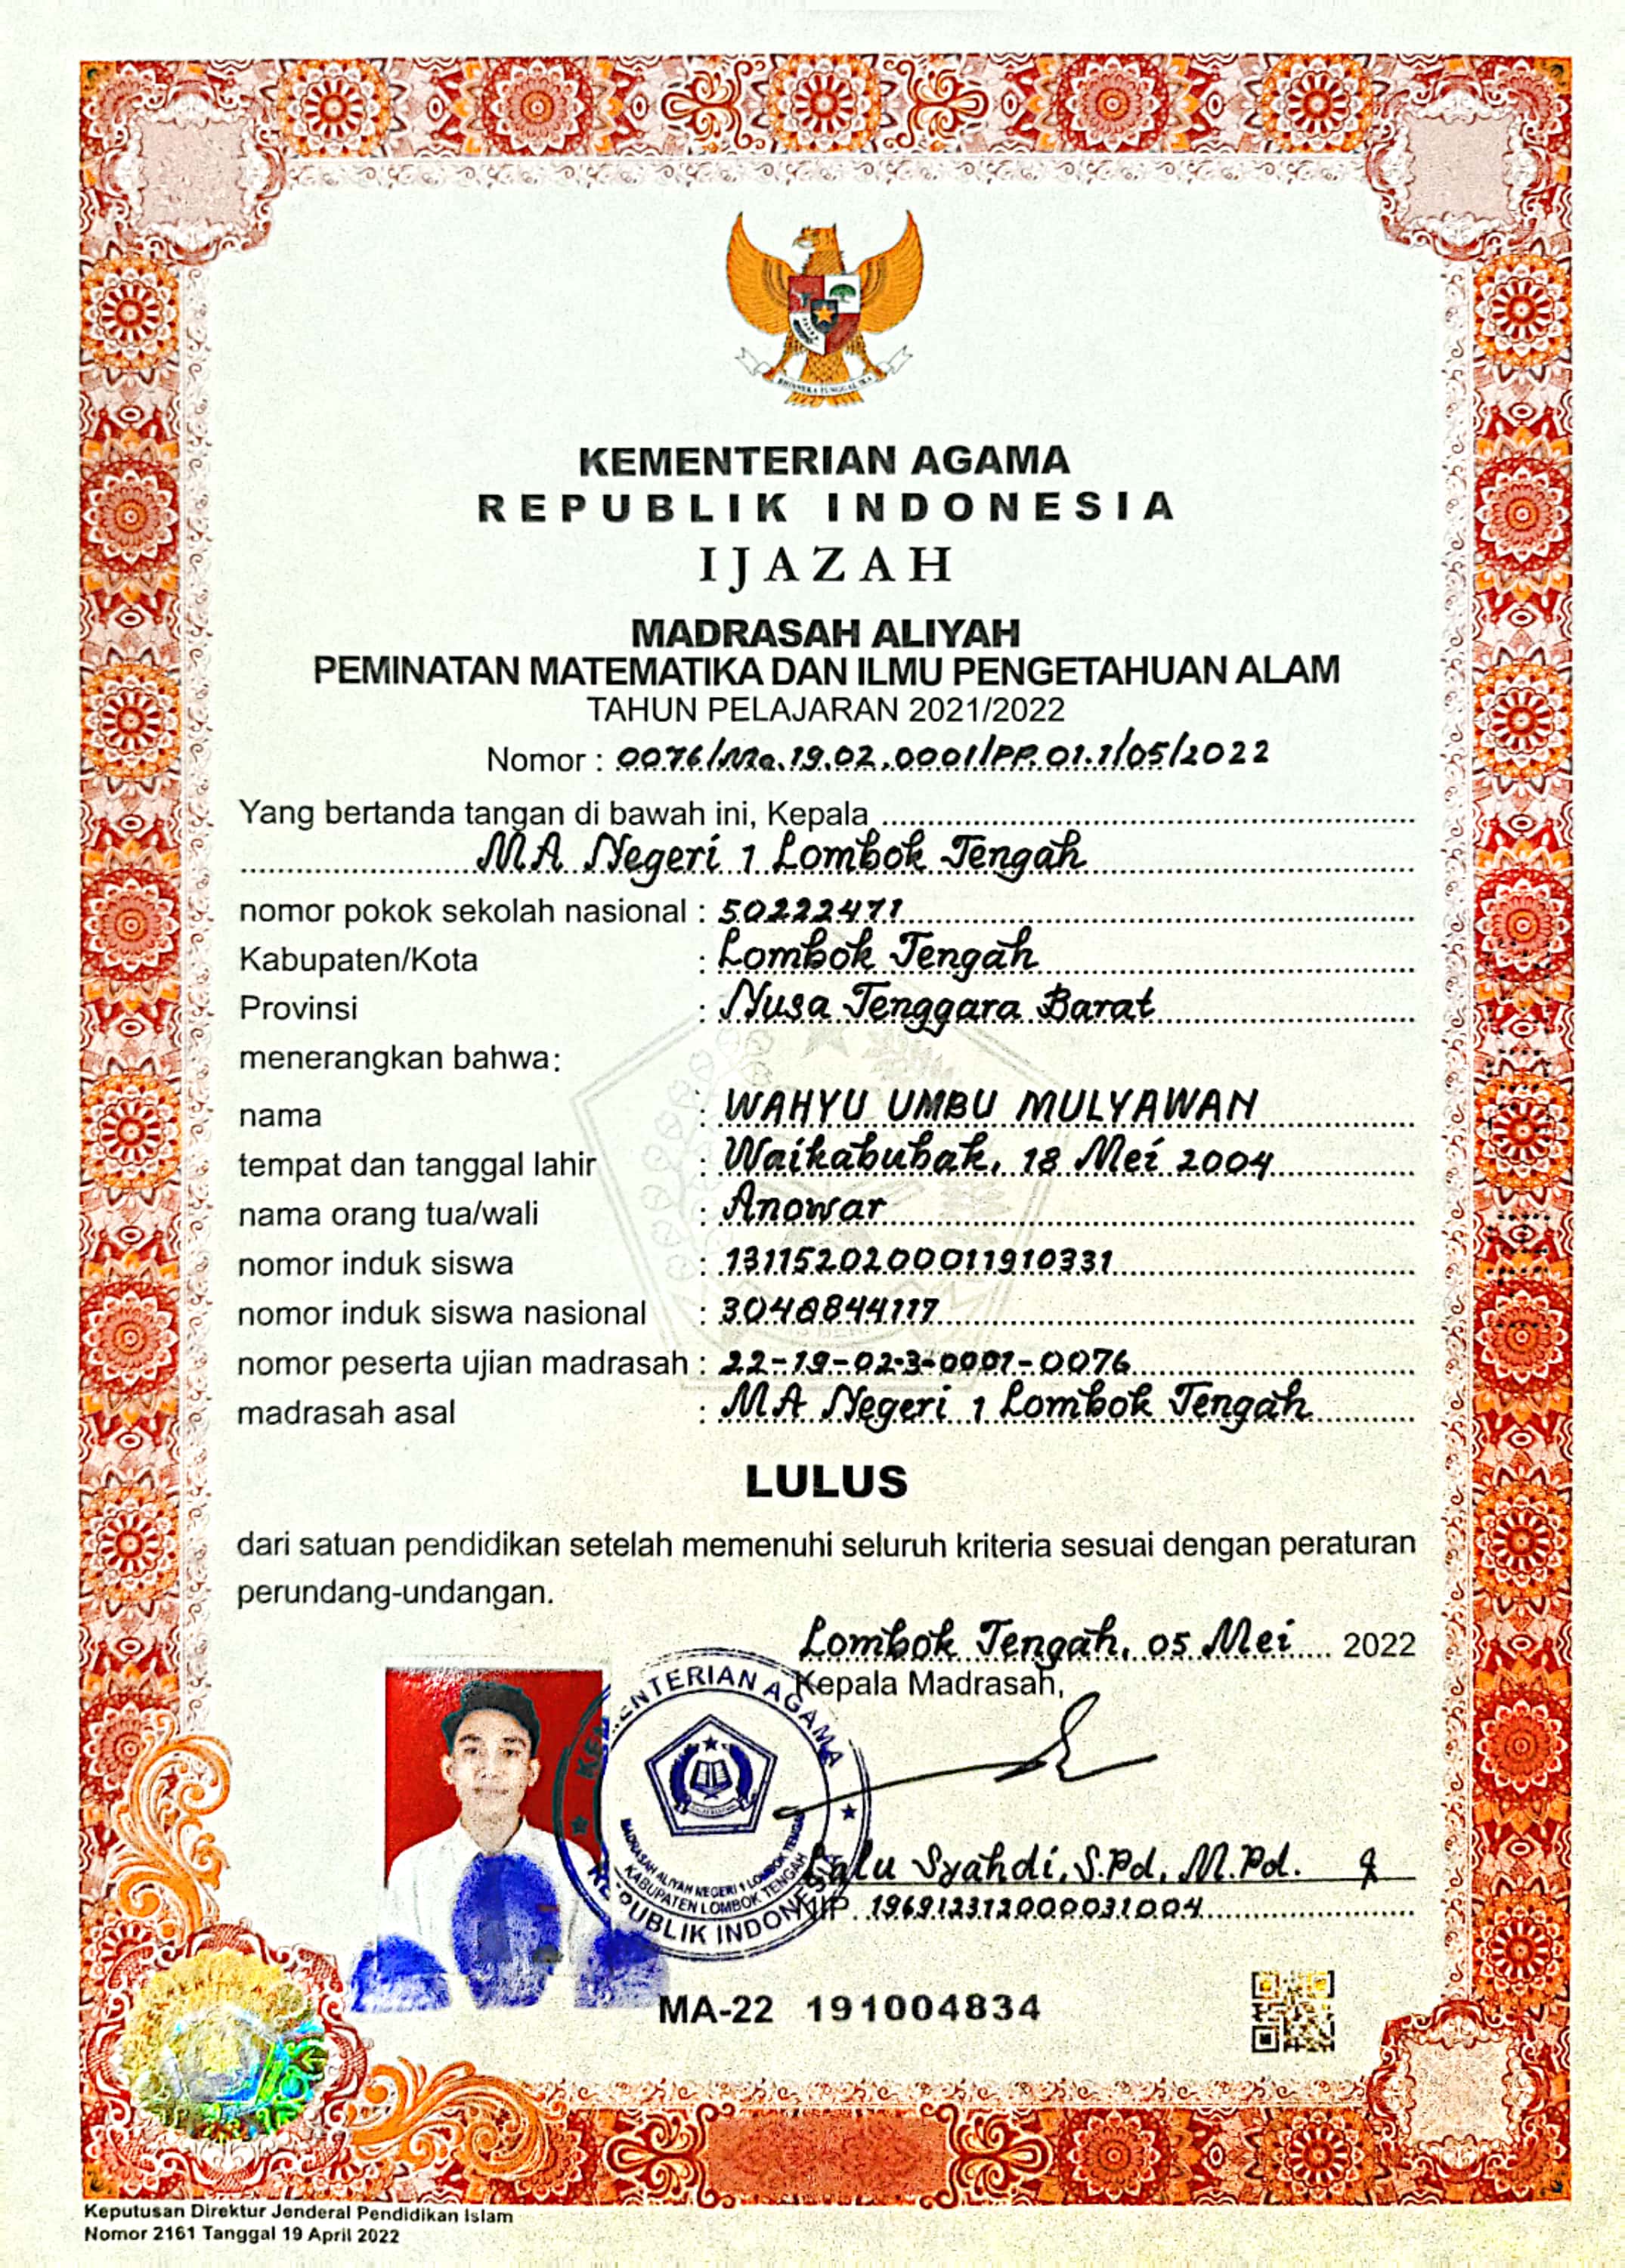 KEMENTERIAN AGAMA
REPUBLIK INDONESIA
IJAZAH
MADRASAH ALIYAH
PEMINATAN MATEMATIKA DAN ILMU PENGETAHUAN ALAM
TAHUN PELAJARAN 2021/2022
Nomor : 0076/Ma.19.02.0001/PP.01.1/05/2022
Yang bertanda tangan di bawah ini, Kepala
MA Negeri 1 Lombok Tengah
nomor pokok sekolah nasional : 50222471
Kabupaten/Kota : Lombok Tengah
Provinsi : Nusa Tenggara Barat
menerangkan bahwa:
nama : WAHYU UMBU MULYAWAN
tempat dan tanggal lahir : Waikabubak, 18 Mei 2004
nama orang tua/wali : Anowar
nomor induk siswa : 1311520200011910331
nomor induk siswa nasional : 3048844117
nomor peserta ujian madrasah : 22-19-02-3-0001-0076
madrasah asal : MA Negeri 1 Lombok Tengah
LULUS
dari satuan pendidikan setelah memenuhi seluruh kriteria sesuai dengan peraturan
perundang-undangan.
Lombok Tengah, 05 Mei 2022
Kepala Madrasah,
KEMENTERIAN AGAMA
MADRASAH ALIYAH NEGERI 1 LOMBOK TENGAH
KABUPATEN LOMBOK TENGAH
REPUBLIK INDONESIA
Lalu Syahdi, S.Pd, M.Pd.
NIP. 196912312000031004
MA-22 191004834
Keputusan Direktur Jenderal Pendidikan Islam
Nomor 2161 Tanggal 19 April 2022